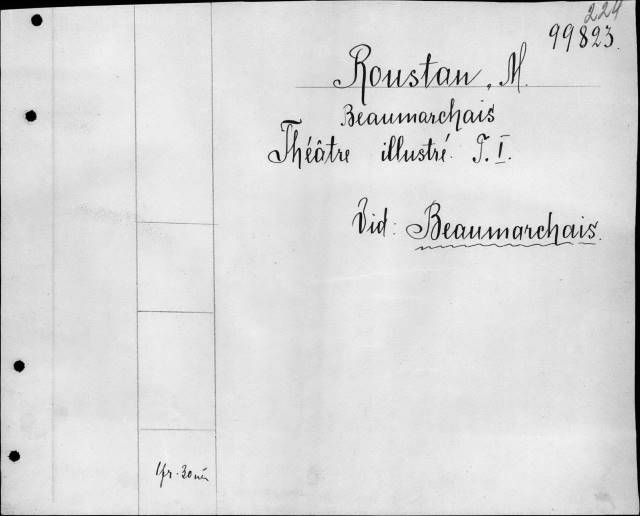 224
99823.
Roustan, M.
Beaumarchais
Théâtre illustré. T. I.
Vid: Beaumarchais.